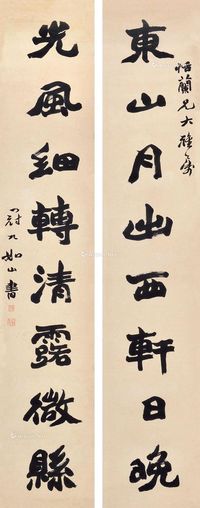 東山月出西軒日晚
恬蘭兄大雅之屬
光風細轉清露微縣
尉九如山書